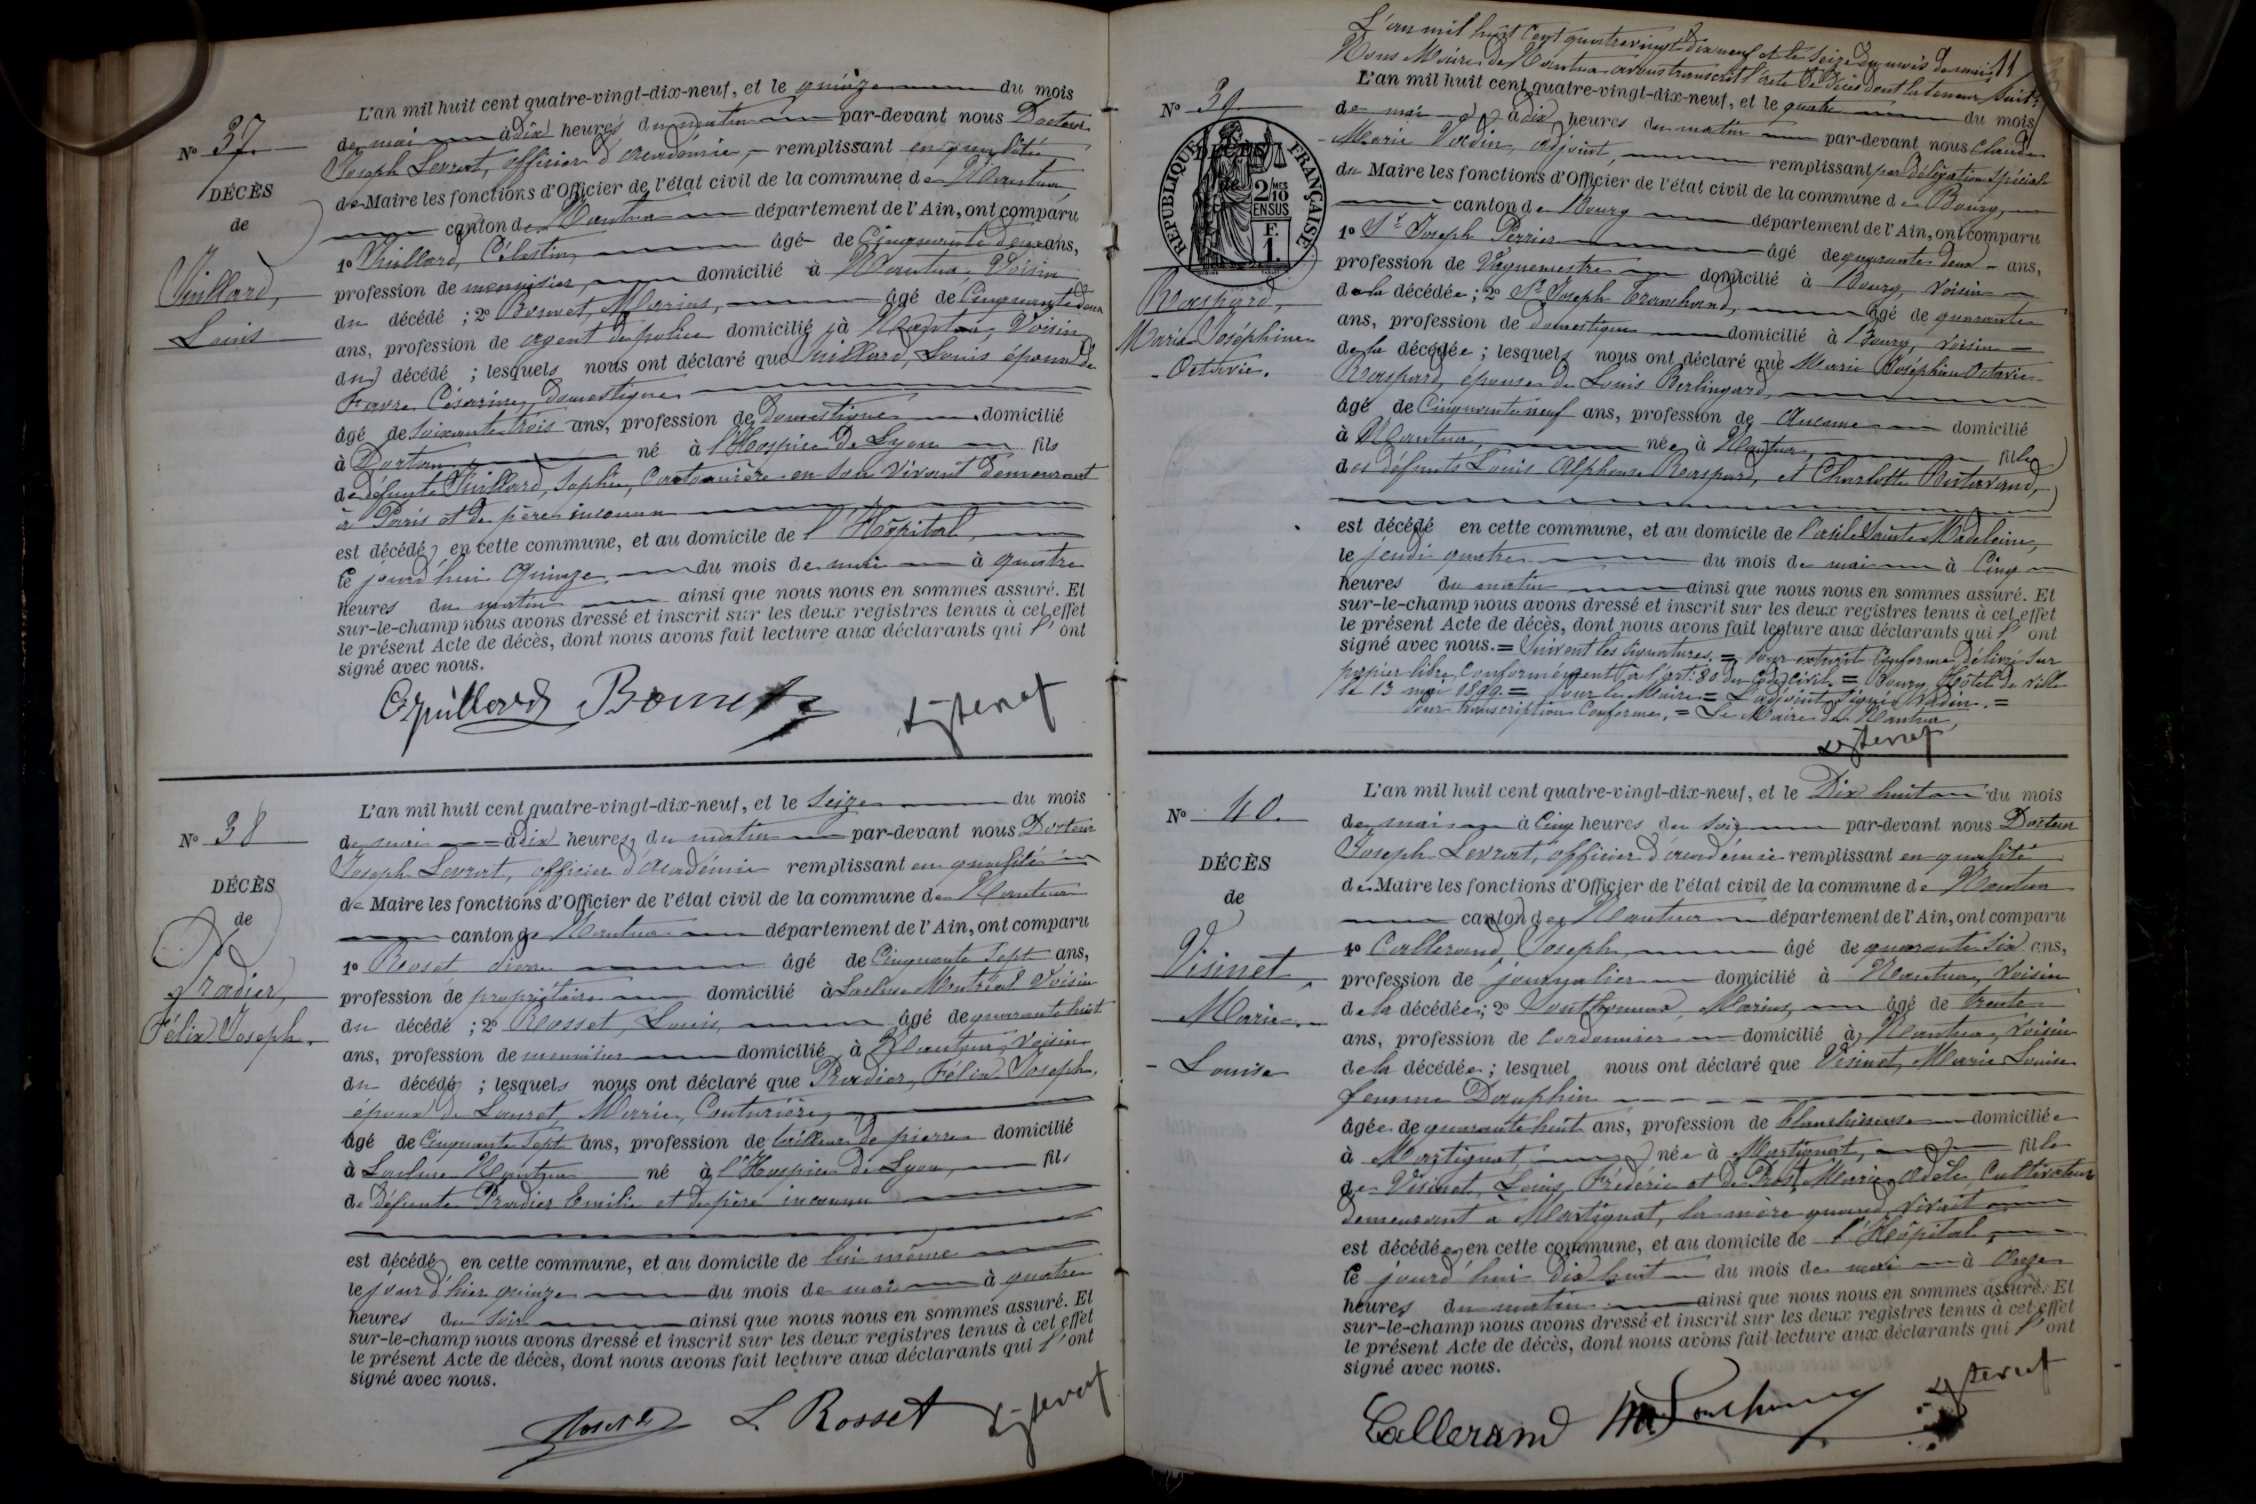 L'an mil huit cent quatre-vingt-dix-neuf, et le quinze du mois
N° 37.
de mai à dix heures du matin par-devant nous Docteur
Joseph Levrat, officier d'académie, remplissant en qualité
DÉCÈS
de Maire les fonctions d'Officier de l'état civil de la commune de Nantua
de
canton de Nantua département de l'Ain, ont comparu
1° Vuillard, Célestin, âgé de Cinquante deux ans,
Vuillard,
profession de menuisier, domicilié à Nantua, Voisin
Louis
du décédé ; 2° Bonnet, Marius, âgé de Cinquante deux
ans, profession de agent de police domicilié à Nantua, Voisin
du décédé ; lesquels nous ont déclaré que Vuillard, Louis époux de
Favre Césarine, Domestique
âgé de soixante trois ans, profession de Domestique domicilié
à Dortan né à l'Hospice de Lyon fils
de défunte Vuillard, Sophie, Couturière en son vivant demeurant
à Paris et de père inconnu
est décédé en cette commune, et au domicile de l'Hôpital,
le jourd'hui quinze du mois de mai à quatre
heures du matin ainsi que nous nous en sommes assuré. Et
sur-le-champ nous avons dressé et inscrit sur les deux registres tenus à cet effet
le présent Acte de décès, dont nous avons fait lecture aux déclarants qui l'ont
signé avec nous.
Vuillard Bonnet
L'an mil huit cent quatre-vingt-dix-neuf, et le seize du mois
N° 38
de mai à dix heures du matin par-devant nous Docteur
Joseph Levrat, officier d'académie remplissant en qualité
DÉCÈS
de Maire les fonctions d'Officier de l'état civil de la commune de Nantua
de
canton de Nantua département de l'Ain, ont comparu
1° Roset âgé de Cinquante Sept ans,
Pradier,
profession de propriétaire domicilié à Lacluse Montréal Voisin
Félix Joseph.
du décédé ; 2° Rosset, Louis, âgé de quarante huit
ans, profession de menuisier domicilié à Nantua, Voisin
du décédé ; lesquels nous ont déclaré que Pradier, Félix Joseph,
époux de Lauret, Marie, Couturière,
âgé de Cinquante Sept ans, profession de tailleur de pierre domicilié
à Lacluse Nantua né à l'Hospice de Lyon, fils
de défunte Pradier Emilie et de père inconnu
est décédé en cette commune, et au domicile de lui même
le jour d'hier quinze du mois de mai à quatre
heures du soir ainsi que nous nous en sommes assuré. Et
sur-le-champ nous avons dressé et inscrit sur les deux registres tenus à cet effet
le présent Acte de décès, dont nous avons fait lecture aux déclarants qui l'ont
signé avec nous.
L. Rosset
L'an mil huit cent quatre vingt dix neuf et le seize du mois de mai, 11
Nous Maire de Nantua avons transcrit l'acte de Décès dont la teneur suit :
L'an mil huit cent quatre-vingt-dix-neuf, et le quatre du mois
N° 39
de mai à dix heures du matin par-devant nous Claude
Marie Vadin, adjoint, remplissant par délégation spéciale
du Maire les fonctions d'Officier de l'état civil de la commune de Bourg,
RÉPUBLIQUE FRANÇAISE
2/10 EN SUS
F. 1.
canton de Bourg département de l'Ain, ont comparu
1° Sr Joseph Perrier âgé de quarante deux ans,
profession de Vaguemestre domicilié à Bourg, voisin
Raspard,
Marie Joséphine
Octavie.
de la décédée ; 2° Sr Joseph Tranchand, âgé de quarante
ans, profession de domestique domicilié à Bourg, voisin
de la décédée ; lesquels nous ont déclaré que Marie Joséphine Octavie
Raspard, épouse de Louis Berlingard,
âgé de Cinquante neuf ans, profession de Aucune domicilié
à Nantua, née à Nantua, fille
des défunts Louis Alphonse Raspard, et Charlotte
est décédé en cette commune, et au domicile de l'asile Sainte Madeleine,
le jeudi quatre du mois de mai à Cinq
heures du matin ainsi que nous nous en sommes assuré. Et
sur-le-champ nous avons dressé et inscrit sur les deux registres tenus à cet effet
le présent Acte de décès, dont nous avons fait lecture aux déclarants qui l'ont
signé avec nous. = Suivent les signatures. = Pour extrait Conforme délivré sur
papier libre, Conformément à l'art. 80 du Code Civil. = Bourg, Hôtel de Ville
le 13 mai 1899. = Pour le Maire = L'adjoint, Signé Vadin. =
Pour transcription Conforme. = Le Maire de Nantua,
L'an mil huit cent quatre-vingt-dix-neuf, et le Dix huit du mois
N° 40.
de mai à Cinq heures du Soir par-devant nous Docteur
Joseph Levrat, officier d'académie remplissant en qualité
DÉCÈS
de Maire les fonctions d'Officier de l'état civil de la commune de Nantua
de
canton de Nantua département de l'Ain, ont comparu
1° Callerand, Joseph, âgé de quarante six ans,
Visinet
profession de journalier domicilié à Nantua, Voisin
Marie
de la décédée ; 2° Marius, âgé de trente
ans, profession de Cordonnier domicilié à Nantua, Voisin
Louise
de la décédée ; lesquel nous ont déclaré que Visinet, Marie Louise
femme Dauphin
âgée de quarante huit ans, profession de blanchisseuse domiciliée
à Martignat, née à Martignat, fille
de Visinet, Louis Fréderic et de Prost, Marie Adèle, Cultivateur
demeurant à Martignat, la mère quand vivait
est décédée en cette commune, et au domicile de l'Hôpital,
le jourd'hui dix huit du mois de mai à Onze
heures du matin ainsi que nous nous en sommes assuré. Et
sur-le-champ nous avons dressé et inscrit sur les deux registres tenus à cet effet
le présent Acte de décès, dont nous avons fait lecture aux déclarants qui l'ont
signé avec nous.
Callerand